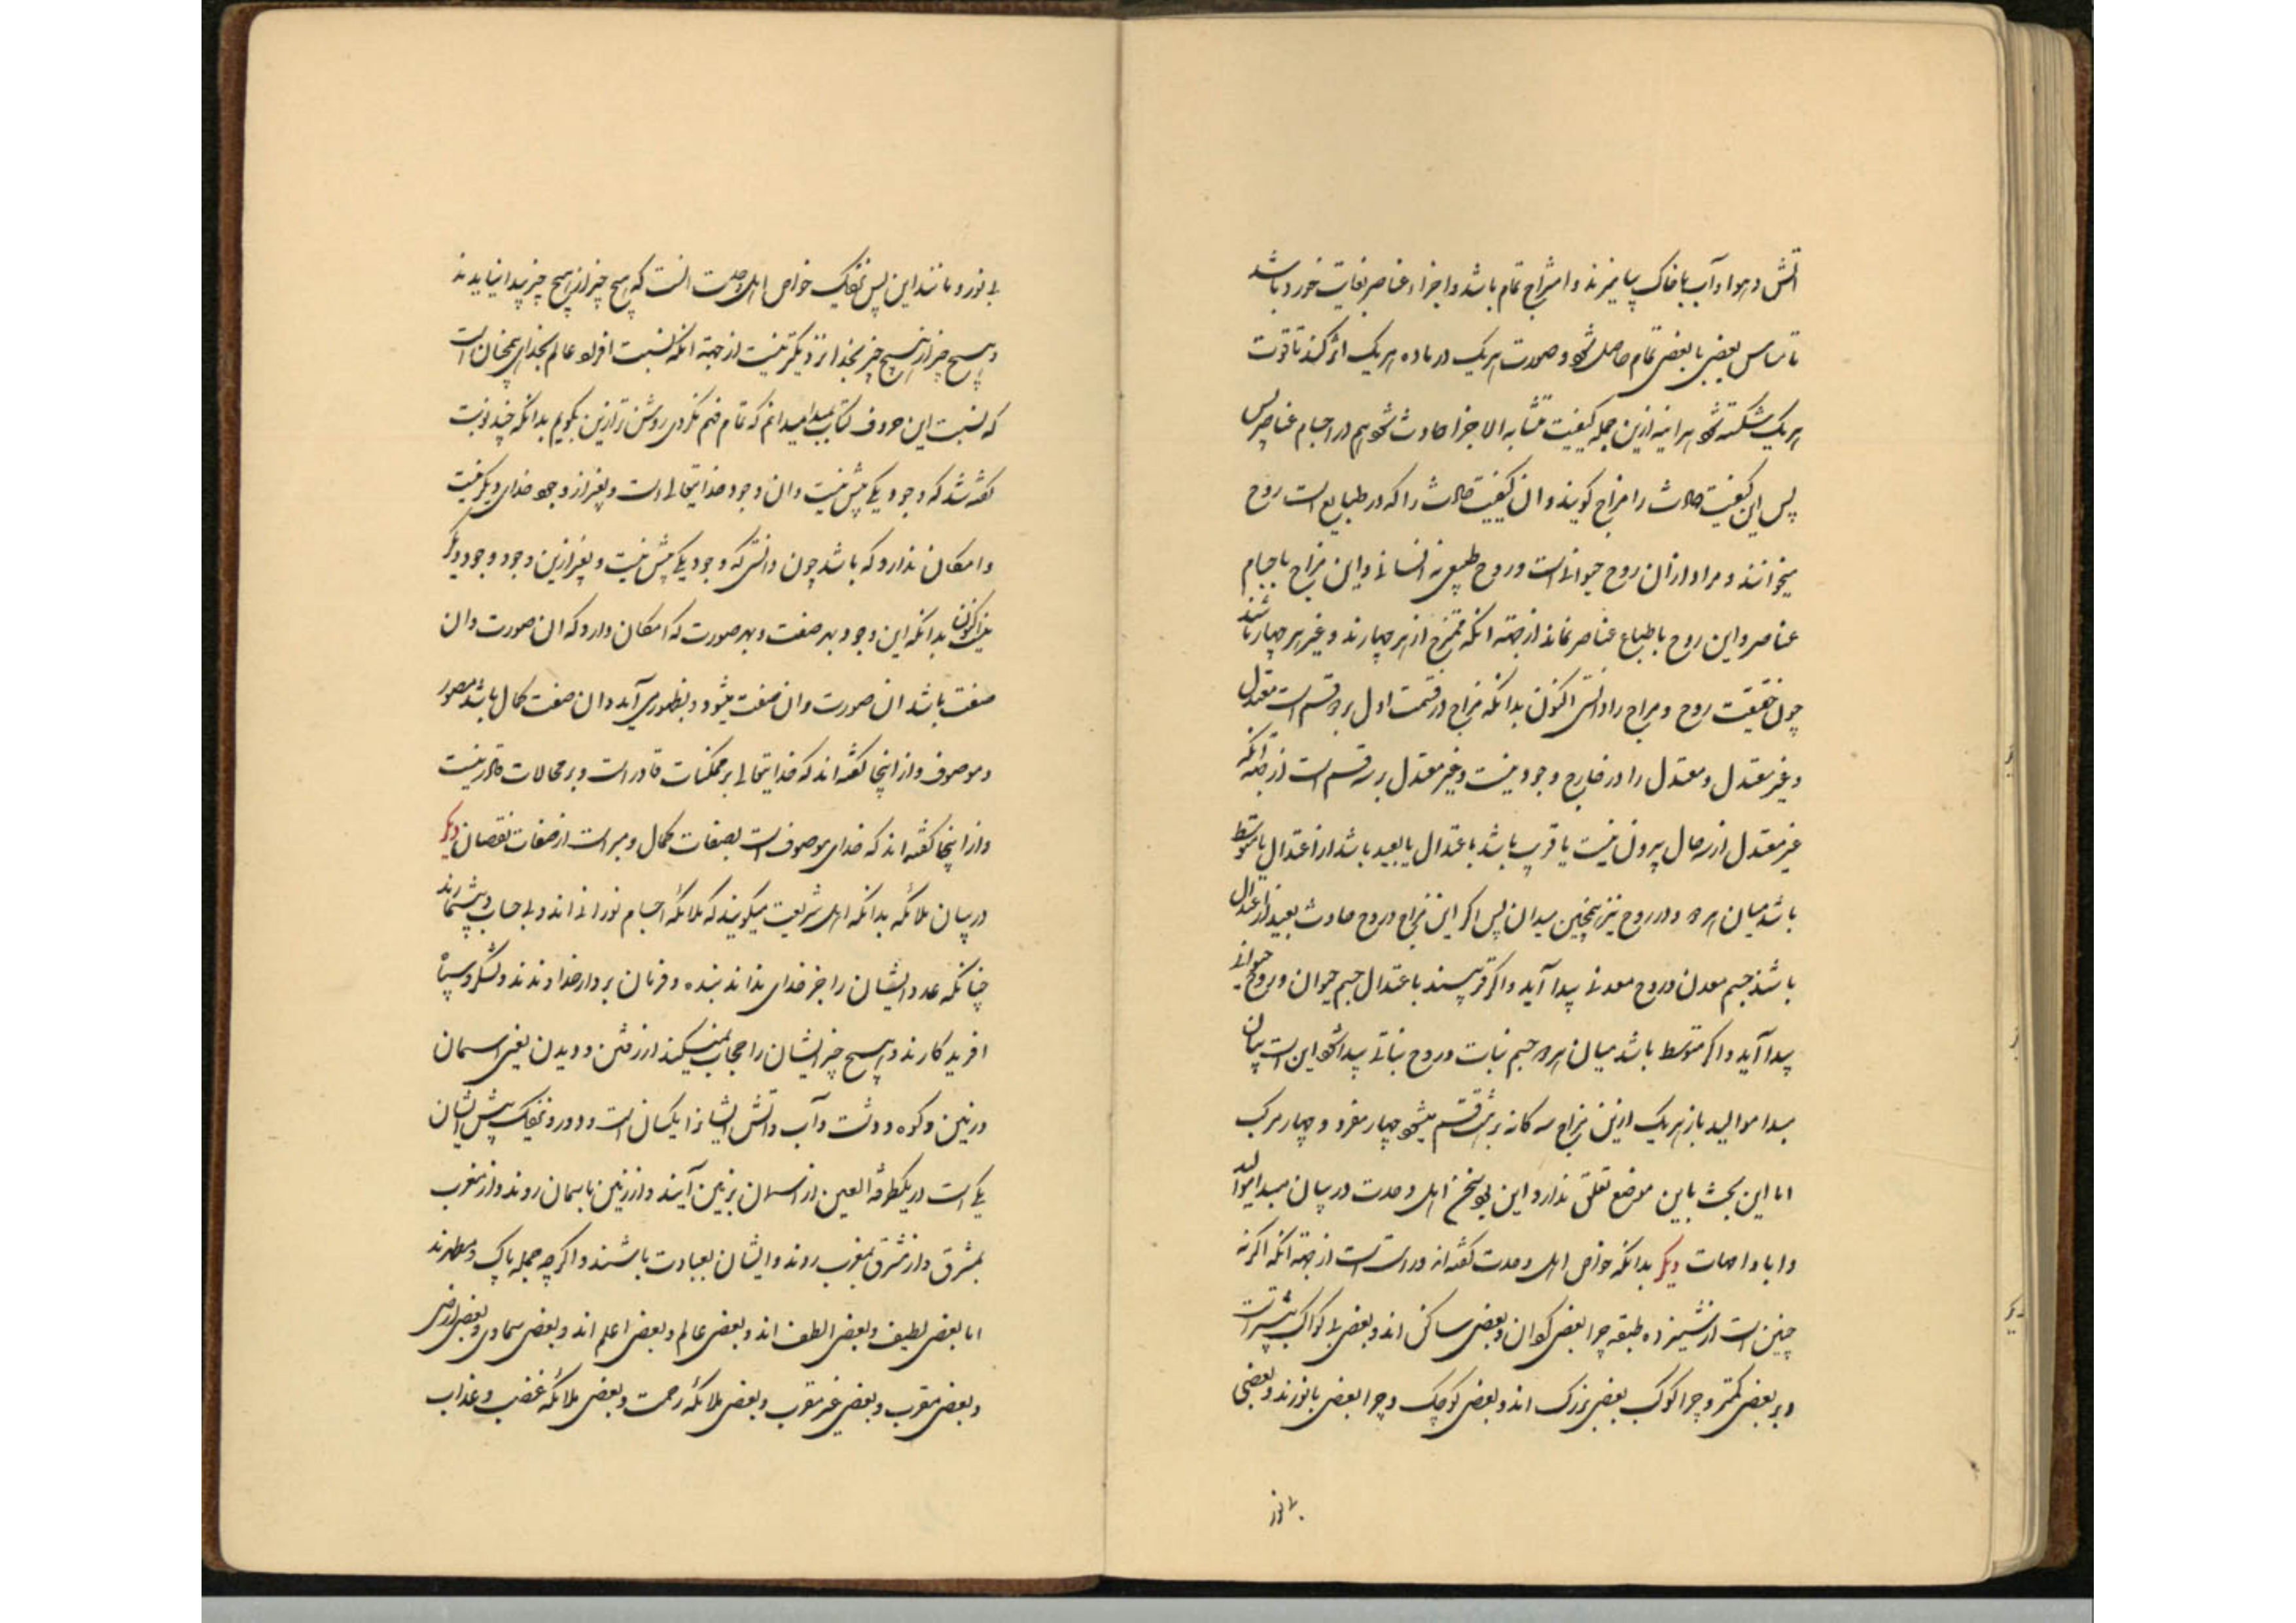 آتش و هوا و آب با خاک بیامیزند و امتزاج تمام باشد و اجزاء عناصر بغایت خورد باشد
تا تماس بعضی با بعضی تمام حاصل شود و صورت هر یک در ماده هر یک اثر کند تا قوت
هر یک شکسته شود هر اینه ازین جمله کیفیت متشابه الاجزا حادث شود هم در اجسام عناصر پس
پس این کیفیت حادث را مزاج کویند و ان کیفیت حادث را که در طبایع است روح
میخوانند و مراد ازان روح حیوانی است و روح طبیعی نه انسانی و این مزاج باجسام
عناصر و این روح با طباع عناصر نماند از جهته انکه ممتزج از هر چهارند و غیر هر چهار باشند
چون حقیقت روح و مزاج را دانستی اکنون بدانکه مزاج در قسمت اول بر دو قسم است معتدل
و غیر معتدل و معتدل را در خارج وجود نیست و غیر معتدل بر سه قسم است از جهته انکه
غیر معتدل از سه حال بیرون نیست یا قریب باشد باعتدال یا بعید باشد از اعتدال یا متوسط
باشد میان هر دو و در روح نیز همچنین میدان پس اکر این مزاج و روح حادث بعید از اعتدال
باشد جسم معدن و روح معدنی پیدا آید و اکر قریب باعتدال جسم حیوان و روح حیوانی
پیدا آید و اکر متوسط باشد میان هر دو جسم نبات و روح نباتی پیدا شود این است بیان
مبدا موالید باز هر یک ازین مزاج سه کانه بر هشت قسم میشود چهار مفرد و چهار مرکب
اما این بحث باین موضع تعلق ندارد و این بود سخن اهل وحدت در بیان مبدا موالید
و ابا و امهات دیکر بدانکه خواص اهل وحدت کفته اند و راست است از جهته انکه اکر نه
چنین است از شیمزده طبقه چرا بعضی کردان و بعضی ساکن اند و بعضی را کواکب بیشتر است
و بر بعضی کمتر و چرا کوکب بعضی بزرک اند و بعضی کوچک و چرا بعضی با نورند و بعضی
بی نور
بی نور و مانند این پس نزدیک خواص اهل وحدت انست که هیچ چیز از هیچ چیز پیدا نیاید ند
و هیچ چیز از هیچ چیز بخدا نزدیکتر نیست از جهته انکه نسبت افراد عالم بخدای همچنان است
که نسبت این حروف کتاب بمداد میدانم که تمام فهم نکردی روشن تر ازین بکویم بدانکه چند نوبت
کفته شد که وجود یکی بیش نیست و ان وجود خدایتعالی است و بغیر از وجود خدای دیکر نیست
و امکان ندارد که باشد چون دانستی که وجود یکی بیش نیست و بغیر ازین وجود وجود دیکر
نیست اکنون بدانکه این وجود بهر صفت و بهر صورت که امکان دارد که ان صورت و ان
صفت باشد ان صورت و ان صفت میشود و بظهور می آید و ان صفت کمال باشد مصور
و موصوف و از اینجا کفته اند که خدایتعالی بر ممکنات قادر است و بر محالات قادر نیست
و از اینجا کفته اند که خدای موصوف است بصفات کمال و مبراست از صفات نقصان دیکر
در بیان ملائکه بدانکه اهل شریعت میکویند که ملائکه اجسام نورانی اند و بی حساب و بیشمارند
چنانکه عدد ایشان را جز خدای نداند بنده و فرمان بردار خداوندند و لشکر و سپاه
افریدکارند و هیچ چیز ایشان را حجاب نمیکند از رفتن و دیدن یعنی اسمان
و زمین و کوه و دشت و آب و آتش ایشانرا یکسان است و دور و نزدیک پیش ایشان
یکی است در یکطرفة العین از اسمان بزمین آیند و از زمین باسمان روند و از مغرب
بمشرق و از مشرق بمغرب روند و ایشان بعبادت باشند و اکر چه جمله پاک و مطهرند
اما بعضی لطیف و بعضی الطف اند و بعضی عالم و بعضی اعلم اند و بعضی سماوی و بعضی ارضی
و بعضی مقرب و بعضی غیر مقرب و بعضی ملائکه رحمت و بعضی ملائکه غضب و عذاب